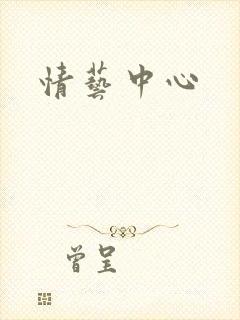 情藝中心
曾呈